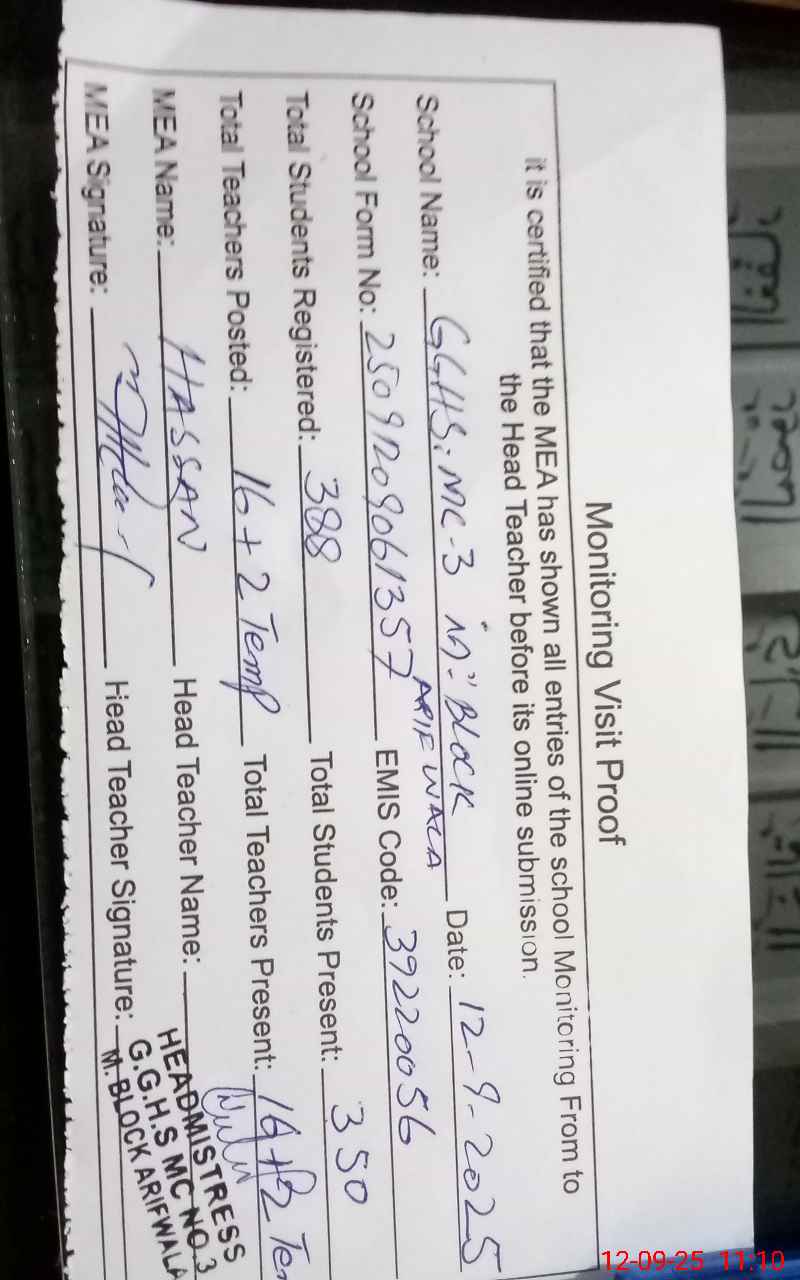 Monitoring Visit Proof
it is certified that the MEA has shown all entries of the school Monitoring From to
the Head Teacher before its online submission.
School Name: GGHS. MC-3 "M" BLOCK ARIFWALA Date: 12-9-2025
School Form No: 25091209061357 EMIS Code: 39220056
Total Students Registered: 388 Total Students Present: 350
Total Teachers Posted: 16+2 Temp Total Teachers Present: +2 Te
MEA Name: HASSAN Head Teacher Name:
MEA Signature: Head Teacher Signature:
HEADMISTRESS
G.G.H.S MC NO.3
M. BLOCK ARIFWALA
12-09-25 11:10